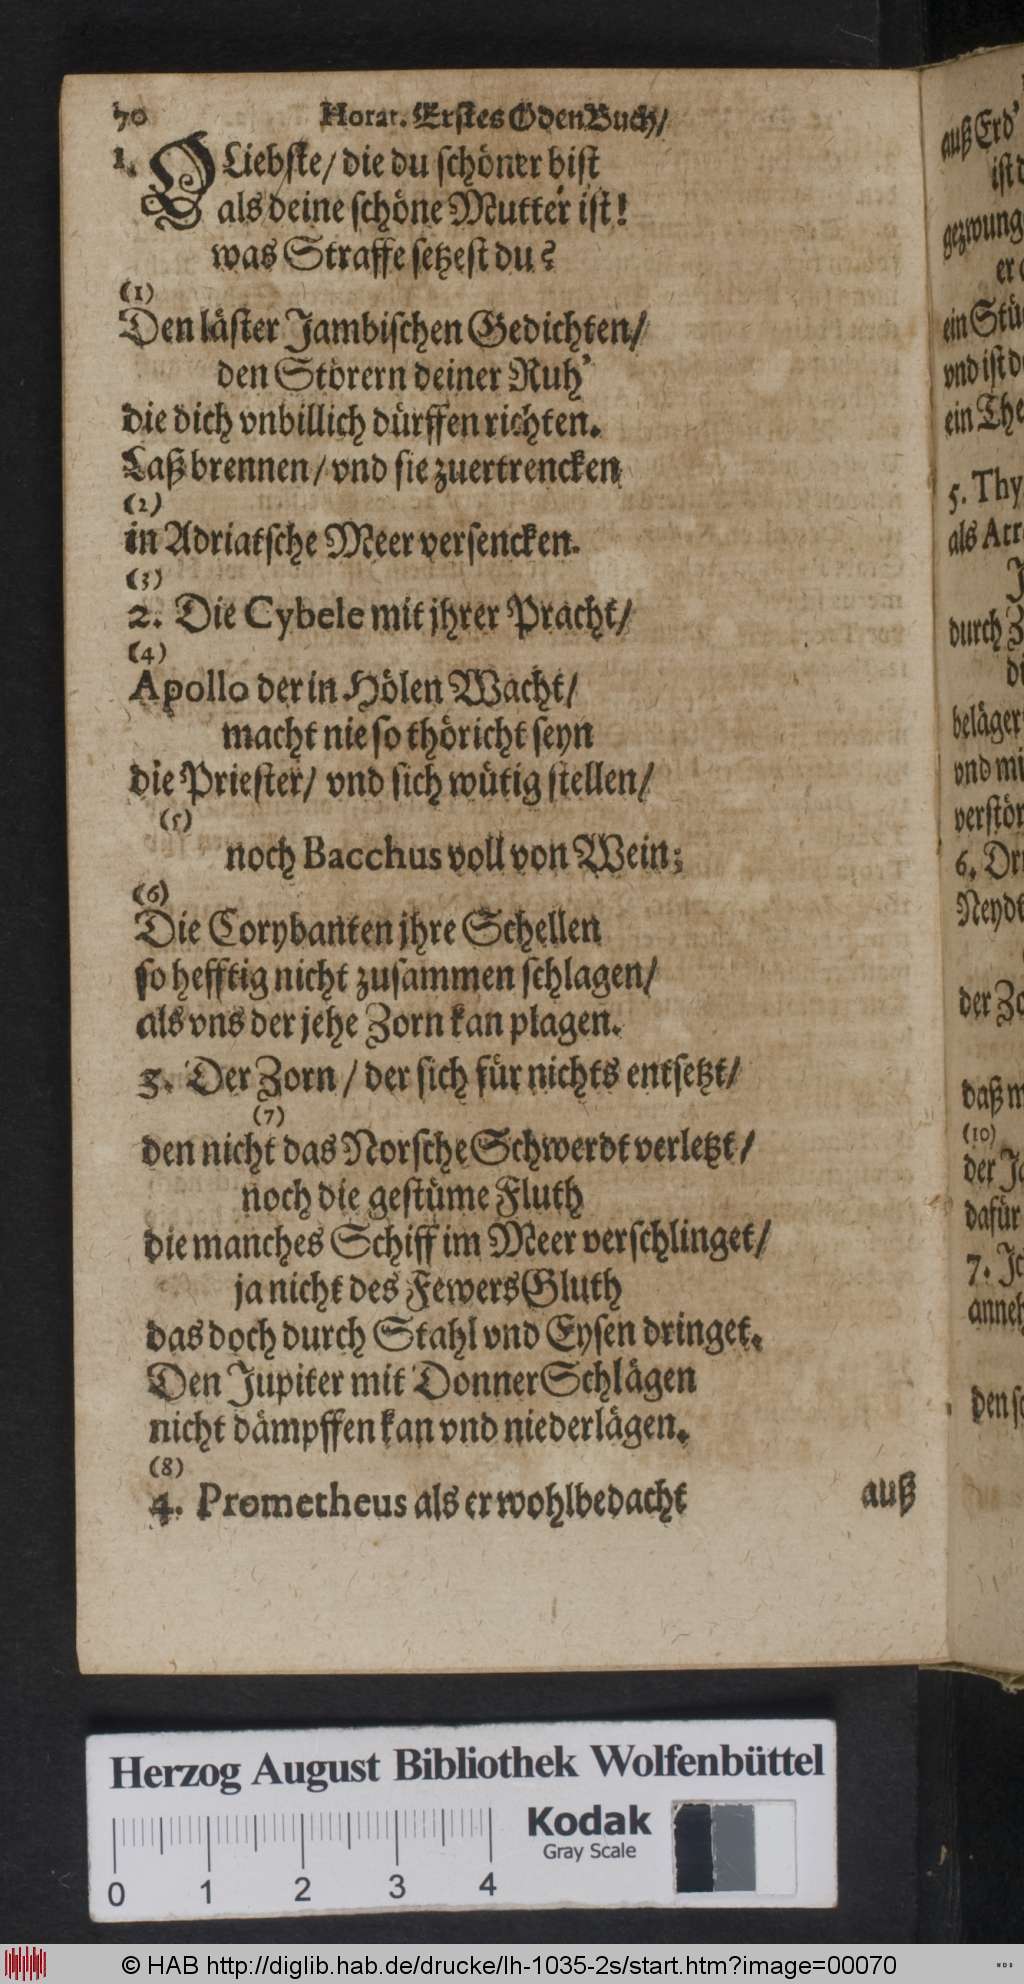 70 Horat. Erstes OdenBuch/
1. O Liebste/ die du schöner bist
als deine schöne Mutter ist!
was Straffe setzest du?
(1)
Den läster Jambischen Gedichten/
den Störern deiner Ruh'
die dich vnbillich dürffen richten.
Laß brennen/ vnd sie zuertrencken
(2)
in Adriatsche Meer versencken.
(3)
2. Die Cybele mit jhrer Pracht/
(4)
Apollo der in Hölen Wacht/
macht nie so thöricht seyn
die Priester/ vnd sich wütig stellen/
(5)
noch Bacchus voll von Wein;
(6)
Die Corybanten jhre Schellen
so hefftig nicht zusammen schlagen/
als vns der jehe Zorn kan plagen.
3. Der Zorn / der sich für nichts entsetzt/
(7)
den nicht das Norsche Schwerdt verletzt/
noch die gestüme Fluth
die manches Schiff im Meer verschlinget/
ja nicht des Fewers Gluth
das doch durch Stahl vnd Eysen dringet.
Den Jupiter mit DonnerSchlägen
nicht dämpffen kan vnd niederlägen.
(8)
4. Prometheus als er wohlbedacht
auß
auß Erd'
ist d
gezwung
er
ein Stü
vnd ist d
ein The
5. Thy
als Atr
J
durch Z
di
beläger
vnd mi
verstör
6. Dr
Neydt
der Zo
daß m
(10)
der J
dafür
7. Jc
anneh
den s
Herzog August Bibliothek Wolfenbüttel
Kodak
Gray Scale
0 1 2 3 4
© HAB http://diglib.hab.de/drucke/lh-1035-2s/start.htm?image=00070